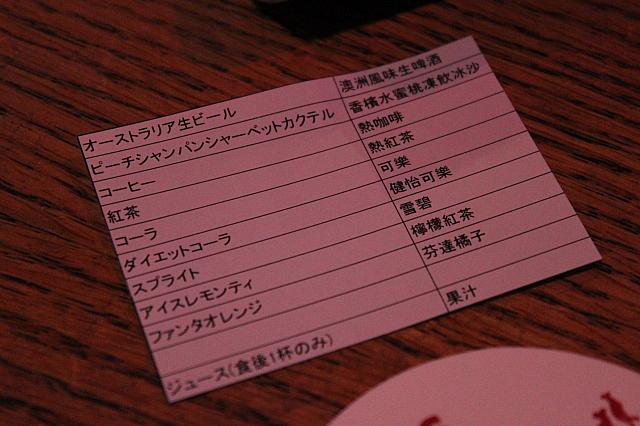 オーストラリア生ビール 澳洲風味生啤酒
ピーチシャンパンシャーベットカクテル 香檳水蜜桃凍飲冰沙
コーヒー 熱咖啡
紅茶 熱紅茶
コーラ 可樂
ダイエットコーラ 健怡可樂
スプライト 雪碧
アイスレモンティ 檸檬紅茶
ファンタオレンジ 芬達橘子
ジュース(食後1杯のみ) 果汁